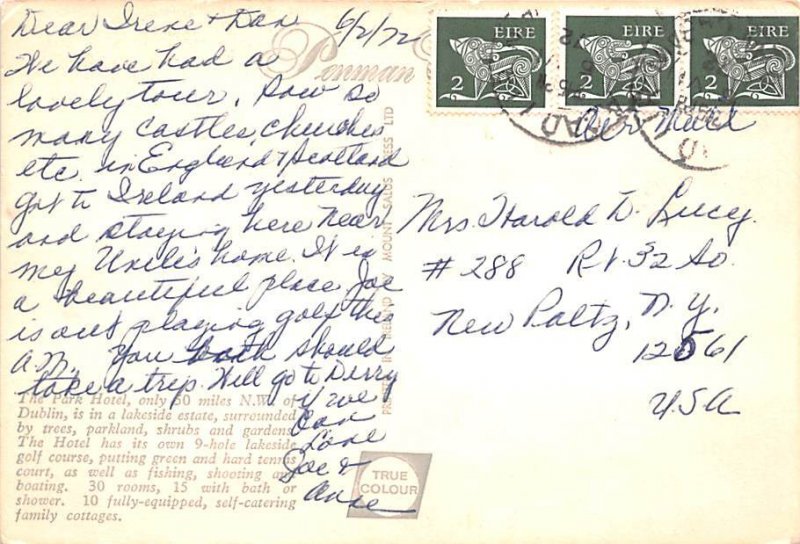 Dear Irene + Dan 6/2/72
We have had a
lovely tour. Saw so
many castles, churches
etc. in England & Scotland
got to Ireland yesterday
and staying here near
my Uncle's home. It is
a beautiful place. Joe
is out playing golf this
A.M. You both should
take a trip. Will go to Derry
if we
can
Love
Joe &
Penman
EIRE
2
EIRE
2
EIRE
2
Air Mail
Mrs. Harold D. Lucy
# 288 Rt. 32 So.
New Paltz, N.Y.
12561
USA
PRINTED IN IRELAND BY MOUNT SALUS PRESS LTD
The Park Hotel, only 50 miles N.W. of
Dublin, is in a lakeside estate, surrounded
by trees, parkland, shrubs and gardens.
The Hotel has its own 9-hole lakeside
golf course, putting green and hard tennis
court, as well as fishing, shooting and
boating. 30 rooms, 15 with bath or
shower. 10 fully-equipped, self-catering
family cottages.
TRUE
COLOUR